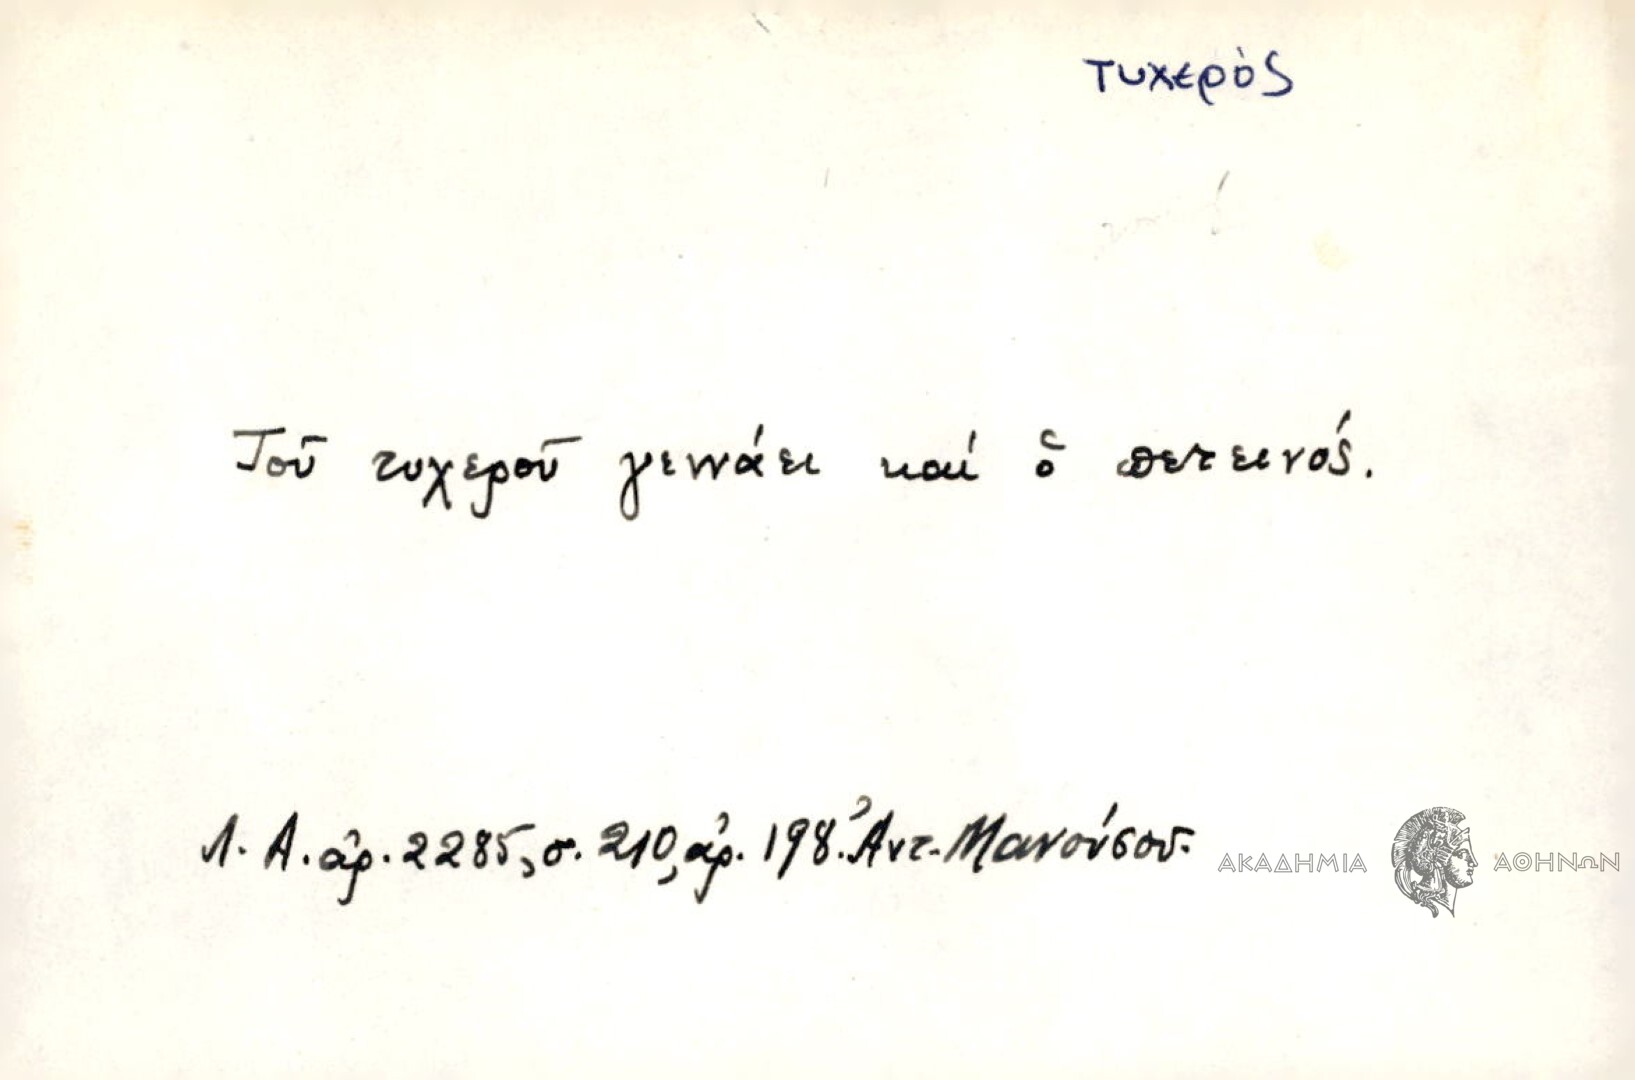 τυχερὸς
Τοῦ τυχεροῦ γεννάει καί ὁ πετεινός.
Λ. Α. ἀρ. 2285, σ. 210, ἀρ. 198. Ἀντ. Μανούσου.
ΑΚΑΔΗΜΙΑ ΑΘΗΝΩΝ